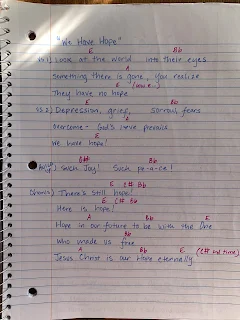 "We Have Hope"
E Bb
Vs.1) Look at the world into their eyes
A
Something there is gone, you realize
E
They have no hope
E Bb
VS.2) Depression, grief, sorrow, fears
A
overcome - God's love prevails
E
We have hope!
G## Bb
Such Joy! Such pe-a-ce!
E C# Bb
Chorus) There's still hope!
E C# Bb
Here is hope!
A Bb E
Hope in our future to be with the One
Bb
Who made us free
A Bb E (C# 2nd time)
Jesus Christ is our Hope eternally